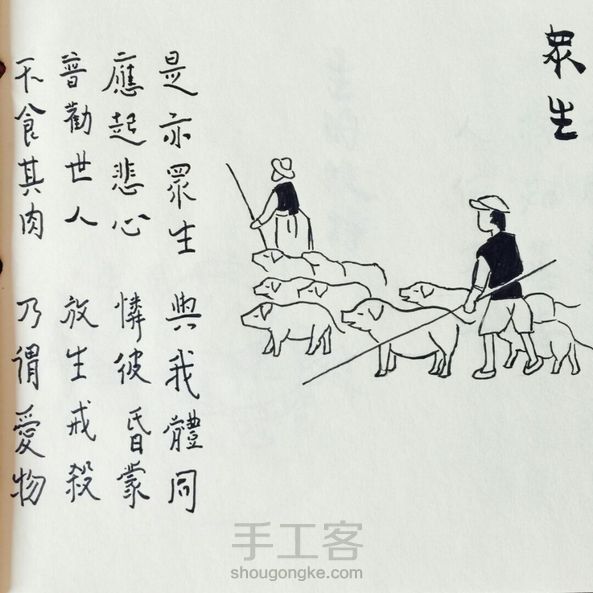 眾生
是亦眾生 與我體同
應起悲心 憐彼昏蒙
普勸世人 放生戒殺
不食其肉 乃謂愛物
手工客
shougongke.com